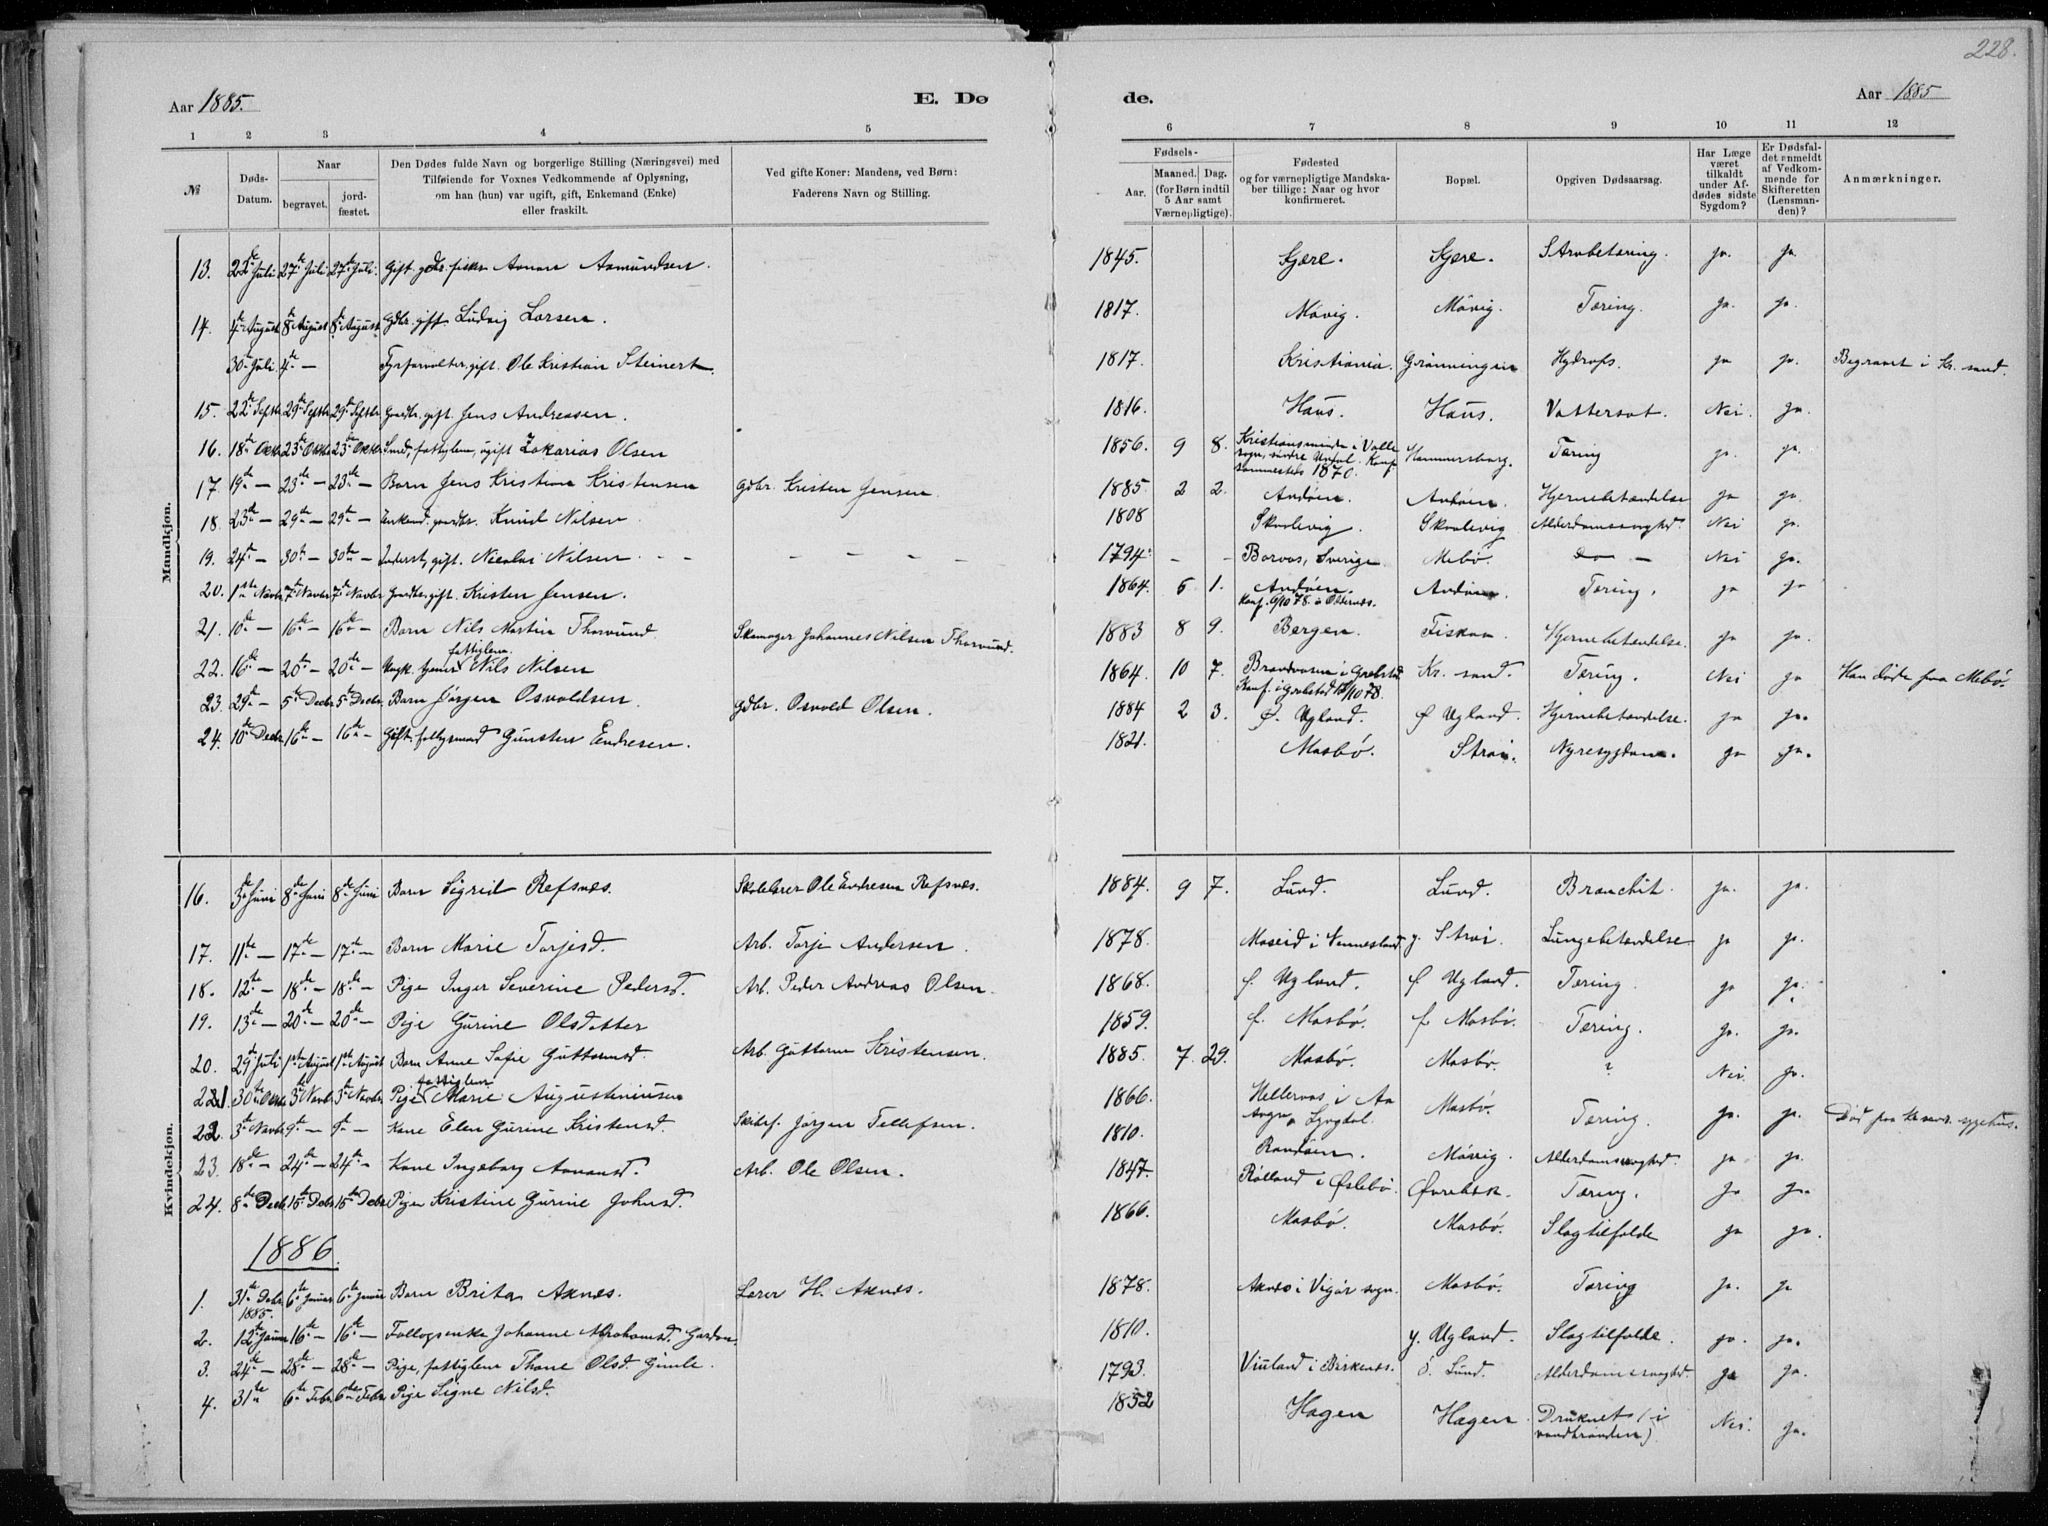 228.
Aar 1885. E. Dø de. Aar 1885
1 2 3 4 5 6 7 8 9 10 11 12
№
Døds-Datum.
Naar
begravet.
jord-fæstet.
Den Dødes fulde Navn og borgerlige Stilling (Næringsvei) med
Tilføiende for Voxnes Vedkommende af Oplysning,
om han (hun) var ugift, gift, Enkemand (Enke)
eller fraskilt.
Ved gifte Koner: Mandens, ved Børn:
Faderens Navn og Stilling.
Fødsels-
Aar.
Maaned. Dag.
(for Børn indtil
5 Aar samt
Værnepligtige).
Fødested
og for værnepligtige Mandska-
ber tillige: Naar og hvor
konfirmeret.
Bopæl.
Opgiven Dødsaarsag.
Har Læge
været
tilkaldt
under Af-
dødes sidste
Sygdom?
Er Dødsfal-
det anmeldt
af Vedkom-
mende for
Skifteretten
(Lensman-
den)?
Anmærkninger.
Mandkjøn.
13. 22de Juli 27de Juli 27de Juli. Gift gdbr. fisker Aanon Asmundsen. 1845. Kjære. Kjære. Strubetæring. ja. ja.
14. 4de August 8de August 8de August Gdbr. gift Ludvig Larsen. 1817. Møvig. Møvig. Tæring. ja. ja.
30te Juli 4de — Fyrforvalter, gift. Ole Kristian Steinert. 1817. Kristiania. Grønningen Hydrops. ja ja. Begravet i Kr. sand.
15. 22de Septbr 29de Septbr 29de Septbr Gaardbr. gift Jens Andreasen. 1816. Haus. Haus. Vattersot. Nei. ja.
16. 18de Oktbr 23de Oktbr 23de Oktbr Smed, fattiglem, ugift Zakarias Olsen 1856. 9 8. Kristiansminde i Valle
sogn, søndre Undal. Konf.
sammesteds 1870. Hammersborg. Tæring ja. ja.
17. 19de — 23de — 23de — Barn Jens Kristian Kristensen Gdbr. Kristen Jensen. 1885. 2 2. Andøen. Andøen. Hjernebetændelse ja ja.
18. 23de — 29de — 29de — Enkemd. gaardbr. Knud Nilsen. 1808 Skaalevig. Skaalevig Alderdomssvaghed Nei ja.
19. 24de — 30te — 30te — Inderst, gift. Nicolai Nilsen — — — — 1794. — — Boraas, Sverige Mebø. — Nei ja.
20. 1ste Novbr 7de Novbr 7de Novbr Gaardbr, gift. Kristen Jensen. 1864. 6 1. Andøen.
Konf. 6/10 78. i Oddernes. Andøen. Tæring. ja ja
21. 10de — 16de — 16de — Barn Nils Martin Thorsund. Skomager Johannes Nilsen Thorsund. 1883 8 9. Bergen. Fiskaa. Hjernebetændelse. ja ja.
22. 16de — 20de — 20de — Ungk. tjener fattiglem. Nils Nilsen 1864. 10 7. Brandaasen i Greipstad
Konf. i Greipstad /10 78. Kr. sand. Tæring. Nei ja Han døde fra Mebø.
23. 29de — 5te Decbr 5te Decbr. Barn Jørgen Osvoldsen. Gdbr. Osvold Olsen. 1884 2 3. Ø. Ugland. Ø Ugland. Hjernebetændelse. ja ja.
24. 10de Decbr 16de — 16de — Gift. fattigmand Gunsten Endresen. 1821. Mosbø. Strai. Nyresygdom. ja ja.
Kvindekjøn.
16. 3de Juni 8de Juni 8de Juni Barn Sigrid Refsnæs. Skolelærer Ole Endresen Refsnæs. 1884. 9 7. Lund. Lund. Bronchit. ja. ja.
17. 11te — 17de — 17de — Barn Marie Torjesd. Arb. Torje Andersen. 1878. Moseid i Vennesland. y. Strai. Lungebetændelse ja ja.
18. 12te — 18de — 18de — Pige Inger Severine Pedersd. Arb. Peder Andreas Olsen. 1868. Ø. Ugland. Ø Ugland. Tæring. ja ja.
19. 13de — 20de — 20de — Pige Gurine Olsdatter 1859. f. Mosbø. f. Mosbø. Tæring. ja. ja.
20. 29de Juli 1ste August 1ste August Barn Anne Sofie Guttormsd. Arb. Guttorm Kristensen. 1885. 7. 29. Mosbø. Mosbø. ? Nei. ja.
21. 30te Oktbr 3de Novbr 3de Novbr. Pige fattiglem Marie Augustiniusen 1866. Hellevos i Aa
sogn, Lyngdal. Mosbø. Tæring. ja. ja. Død paa sygehus.
22. 3de Novbr 9de — 9de — Kone Elen Gurine Kristensd. Jørgen Tellefsen. 1810. Randøen. Møvig. Alderdomssvaghed. ja ja.
23. 18de — 24de — 24de — Kone Ingeborg Aanonsd. Arb. Ole Olsen. 1847. Rølland i Øslebø. Øvrebæk. Tæring. ja ja.
24. 8de Decbr 15de Decbr 15de Decbr Pige Kristine Gurine Johnsd. 1866. Mosbø. Mosbø. Slagtilfælde ja ja.
1886.
1. 31te Decbr 1885. 6te Januar 6te Januar Barn Brita Aknes. Lærer H. Aknes. 1878. Aknes i Vigør sogn. Mosbø. Tæring ja. ja
2. 12te Januar 16de — 16de — Føllogsenke Johanne Abrahamsd. 1810. y. Ugland. Slagtilfælde. ja. ja.
3. 24de — 28de — 28de — Pige, fattiglem Thone Olsd. Gimle. 1793. Viuland i Birkenes. ö. Lund. Alderdomssvaghed. ja ja.
4. 31te 6te Febr. 6te Febr. Pige Signe Nilsd. 1852 Hagen Hagen. Druknet (i
vandbrønden). Nei. ja.